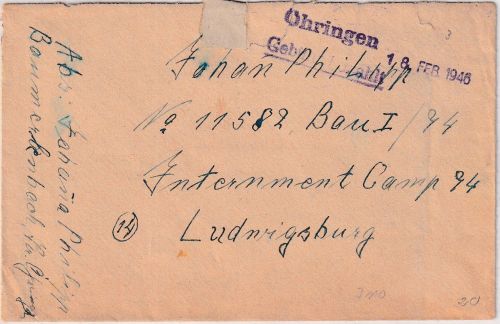 Öhringen
Gebühr bezahlt
18 FEB 1946
Johan Philipp
No 11582, Bau I/74
Internment Camp 74
(14) Ludwigsburg
Abs: Johana Philipp
Baumerlenbach, Kr.
3
310
20